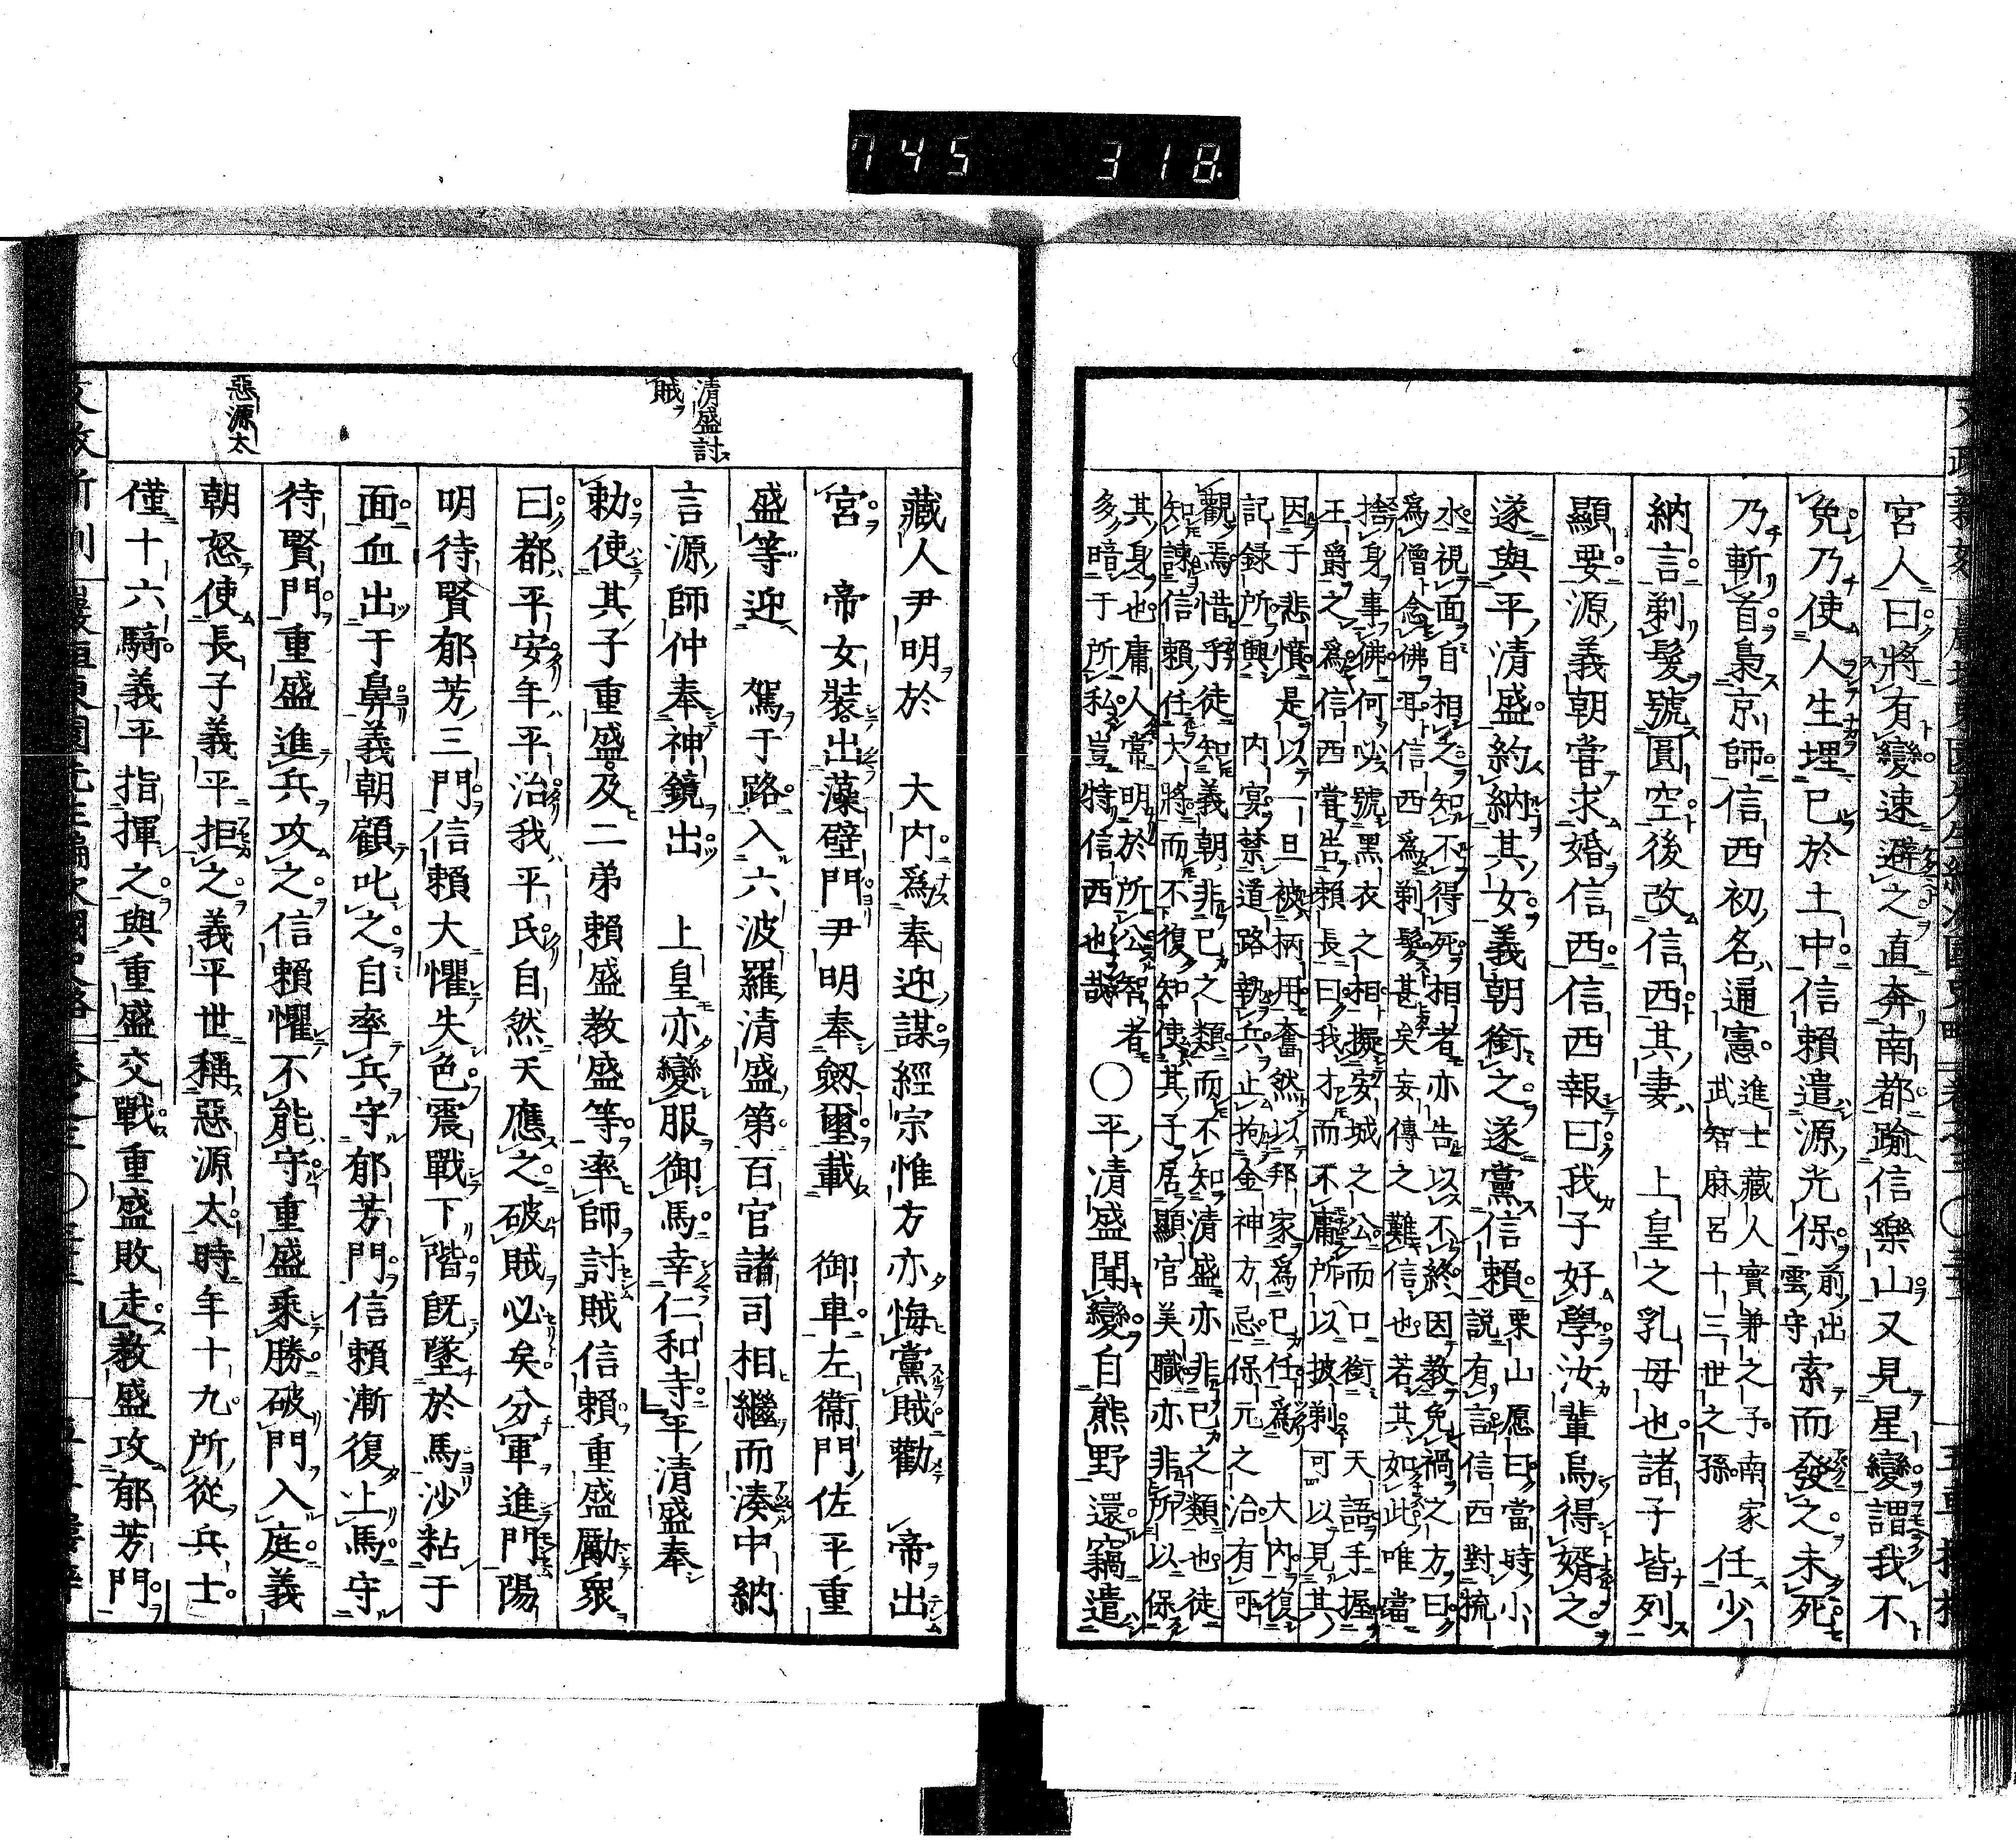 745 318
宮人曰將有變速避之直奔南都踰信樂山又見星變謂我不
免乃使人生埋已於土中信賴遣源光保前出雲守索而發之未死
乃斬首梟京師信西初名通憲進士藏人實兼之子南家武智麻呂十三世之孫任少
納言剃髮號圓空後改信西其妻 上皇之乳母也諸子皆列
顯要源義朝嘗求婚信西信西報曰我子好學汝輩烏得婿之
遂與平清盛約納其女義朝銜之遂黨信賴栗山愿曰當時小說有言信西對梳
水視面自相之知不得死相者亦告以不終因教免禍之方曰
爲僧念佛耳信西爲剃髮甚矣妄傳之難信也若其如此唯當
捨身事佛何必號黑衣之相擬安城之公而口銜 天語手握
王爵之爲信西嘗告賴長曰我才而不庸所以披剃可以見其
因于悲憤是以一旦被柄用奮然以邦家爲已任爲 大內復
記錄所興 內宴禁道路執兵止拘金神方忌保元之治有可
觀焉惜乎徒知義朝非已之類而不知清盛亦非已之類也徒
知諫信賴任大將而不復知使其子居顯官美職亦非所以保
其身也庸人常明於所公智者
多暗于所私豈特信西也哉
○平清盛聞變自熊野還竊遣
清盛討賊
惡源太
藏人尹明於 大內爲奉迎謀經宗惟方亦悔黨賊勸 帝出
宮 帝女裝出藻壁門尹明奉劔璽載 御車左衞門佐平重
盛等迎 駕于路入六波羅清盛第百官諸司相繼而湊中納
言源師仲奉神鏡出 上皇亦變服御馬幸仁和寺平清盛奉
勅使其子重盛及二弟賴盛教盛等率師討賊信賴重盛勵衆
曰都平安年平治我平氏自然天應之破賊必矣分軍進門陽
明待賢郁芳三門信賴大懼失色震戰下階旣墜於馬沙粘于
面血出于鼻義朝顧叱之自率兵守郁芳門信賴漸復上馬守
待賢門重盛進兵攻之信賴懼不能守重盛乘勝破門入庭義
朝怒使長子義平拒之義平世稱惡源太時年十九所從兵士
僅十六騎義平指揮之與重盛交戰重盛敗走教盛攻郁芳門